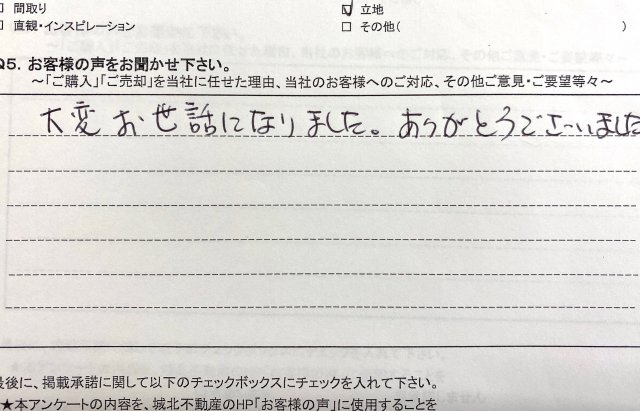 □ 間取り
☑ 立地
□ 直観・インスピレーション
□ その他( )
Q5. お客様の声をお聞かせ下さい。
～「ご購入」「ご売却」を当社に任せた理由、当社のお客様へのご対応、その他ご意見・ご要望等々～
大変お世話になりました。ありがとうございました
最後に、掲載承諾に関して以下のチェックボックスにチェックを入れて下さい。
★本アンケートの内容を、城北不動産のHP「お客様の声」に使用することを